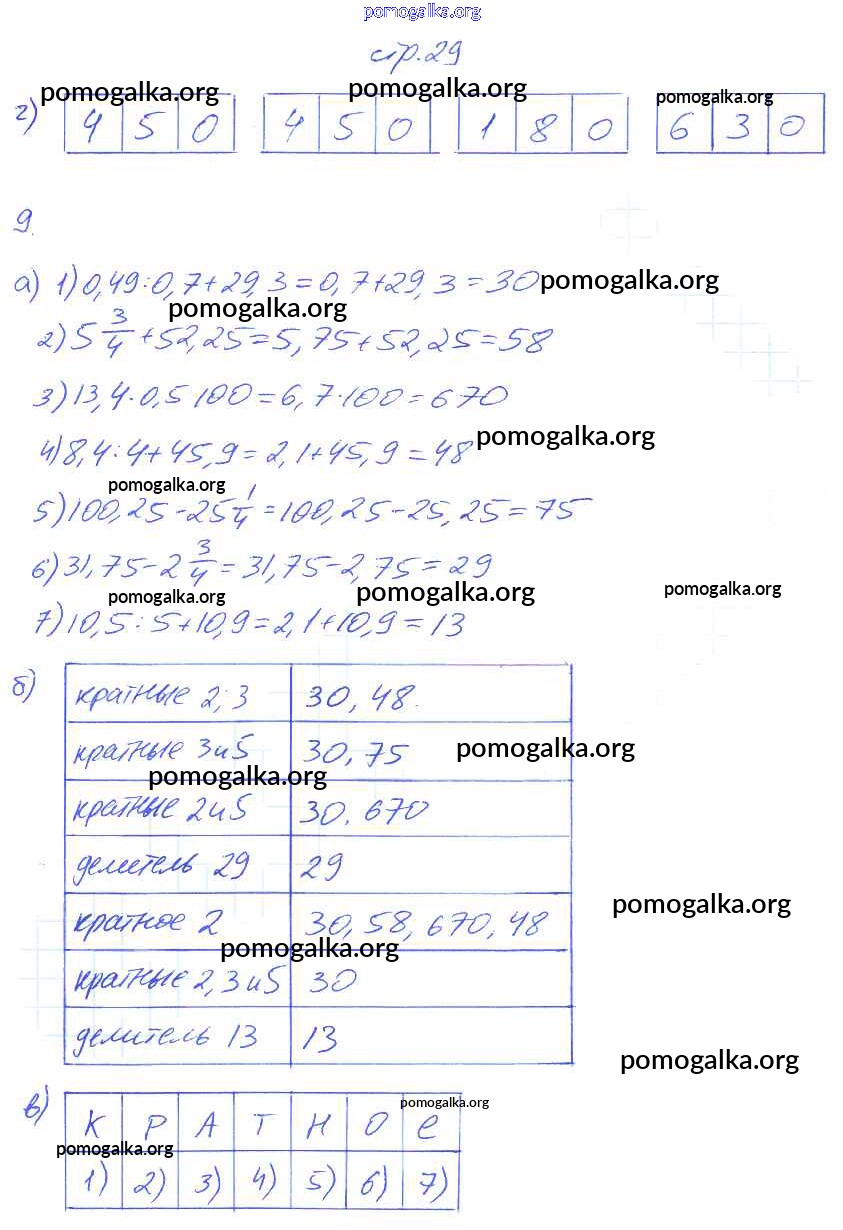 pomogalka.org
стр.29
pomogalka.org pomogalka.org pomogalka.org
г) 4 5 0 4 5 0 1 8 0 6 3 0
9.
а) 1) 0,49:0,7+29,3=0,7+29,3=30 pomogalka.org
pomogalka.org
2) 5 3/4 +52,25=5,75+52,25=58
3) 13,4·0,5 100=6,7·100=670
4) 8,4:4+45,9=2,1+45,9=48 pomogalka.org
pomogalka.org
5) 100,25-25 1/4=100,25-25,25=75
6) 31,75-2 3/4=31,75-2,75=29
pomogalka.org pomogalka.org pomogalka.org
7) 10,5:5+10,9=2,1+10,9=13
б) кратные 2;3 30,48.
кратные 3и5 30,75 pomogalka.org
pomogalka.org
кратные 2и5 30.670
делитель 29 29
pomogalka.org
кратное 2 30,58,670,48
pomogalka.org
кратные 2,3и5 30
делитель 13 13
pomogalka.org
pomogalka.org
в) К Р А Т Н О е
pomogalka.org
1) 2) 3) 4) 5) 6) 7)